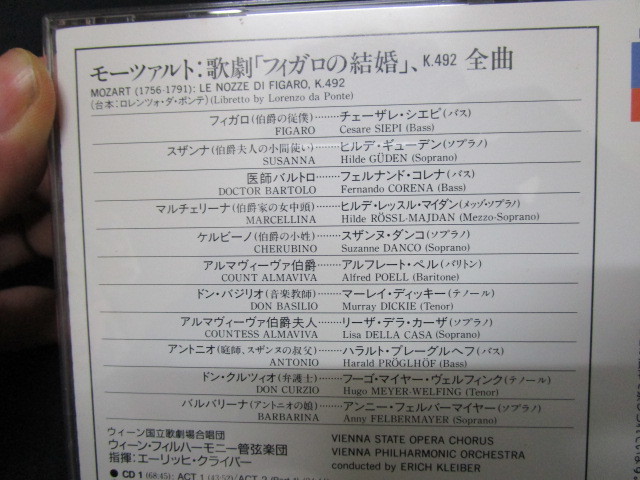 モーツァルト：歌劇「フィガロの結婚」、K.492 全曲
MOZART (1756-1791): LE NOZZE DI FIGARO, K.492
(台本：ロレンツォ・ダ・ポンテ) (Libretto by Lorenzo da Ponte)
フィガロ(伯爵の従僕)………チェーザレ・シエピ(バス)
FIGARO Cesare SIEPI (Bass)
スザンナ(伯爵夫人の小間使い)………ヒルデ・ギューデン(ソプラノ)
SUSANNA Hilde GÜDEN (Soprano)
医師バルトロ………フェルナンド・コレナ(バス)
DOCTOR BARTOLO Fernando CORENA (Bass)
マルチェリーナ(伯爵家の女中頭)………ヒルデ・レッスル・マイダン(メッゾ・ソプラノ)
MARCELLINA Hilde RÖSSL-MAJDAN (Mezzo-Soprano)
ケルビーノ(伯爵の小姓)………スザンヌ・ダンコ(ソプラノ)
CHERUBINO Suzanne DANCO (Soprano)
アルマヴィーヴァ伯爵………アルフレート・ペル(バリトン)
COUNT ALMAVIVA Alfred POELL (Baritone)
ドン・バジリオ(音楽教師)………マーレイ・ディッキー(テノール)
DON BASILIO Murray DICKIE (Tenor)
アルマヴィーヴァ伯爵夫人………リーザ・デラ・カーザ(ソプラノ)
COUNTESS ALMAVIVA Lisa DELLA CASA (Soprano)
アントニオ(庭師、スザンヌの叔父)………ハラルト・プレーグルヘフ(バス)
ANTONIO Harald PRÖGLHÖF (Bass)
ドン・クルツィオ(弁護士)………フーゴ・マイヤー・ヴェルフィンク(テノール)
DON CURZIO Hugo MEYER-WELFING (Tenor)
バルバリーナ(アントニオの娘)………アンニー・フェルバーマイヤー(ソプラノ)
BARBARINA Anny FELBERMAYER (Soprano)
ウィーン国立歌劇場合唱団 VIENNA STATE OPERA CHORUS
ウィーン・フィルハーモニー管弦楽団 VIENNA PHILHARMONIC ORCHESTRA
指揮：エーリッヒ・クライバー conducted by ERICH KLEIBER
● CD 1 (68:45): ACT 1